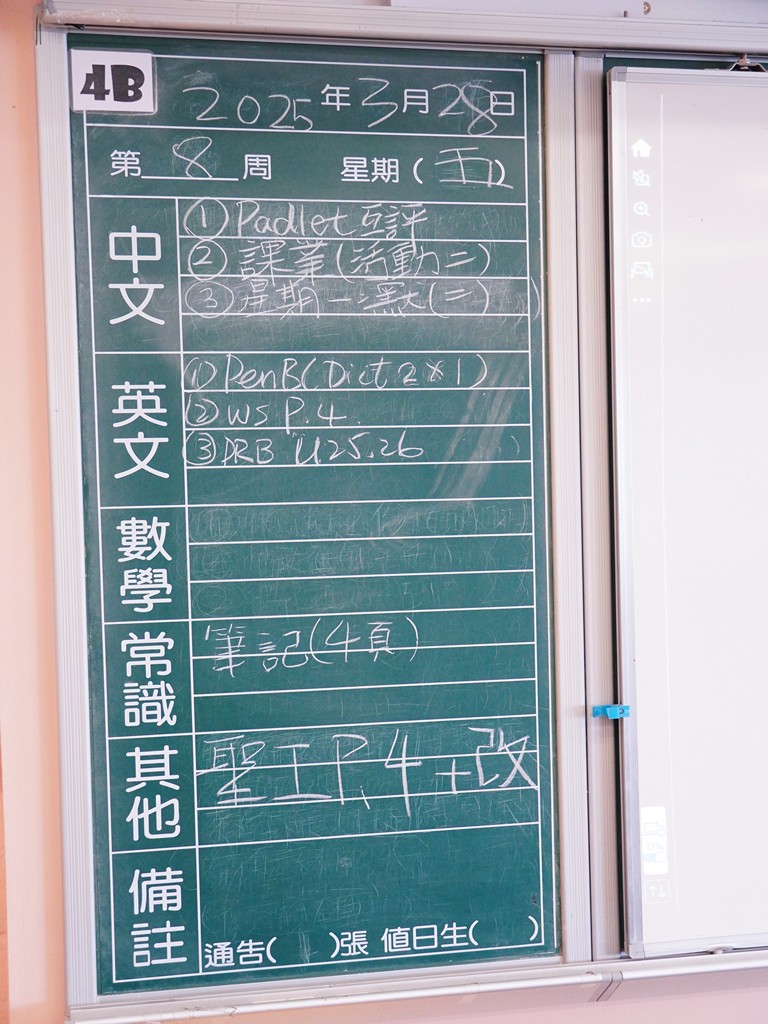 4B
2025年3月28日
第8周 星期(五)
中文
①Padlet互評
②課業(活動二)
③星期一默(二)
英文
①PenB(Dict 2×1)
②WS P.4
③DRB U.25,26
數學
常識
筆記(4頁)
其他
聖工P.4+改
備註
通告( )張 值日生( )